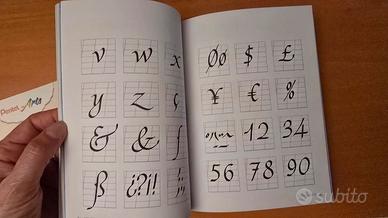 Pentel Arts
v w x
y z ç
& & ſ
ß ¿?¡!
Øø $ £
¥ € %
12 34
56 78 90
subito